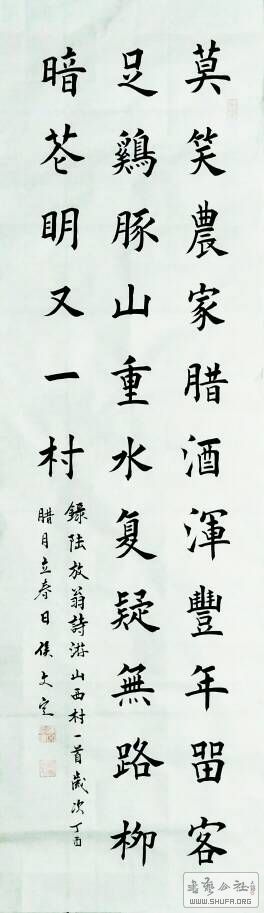 莫笑農家腊酒渾豐年留客
足鷄豚山重水复疑無路柳
暗花眀又一村
錄陆放翁詩游山西村一首歲次丁酉
腊月立春日侯文定
书艺公社
WWW.SHUFA.ORG